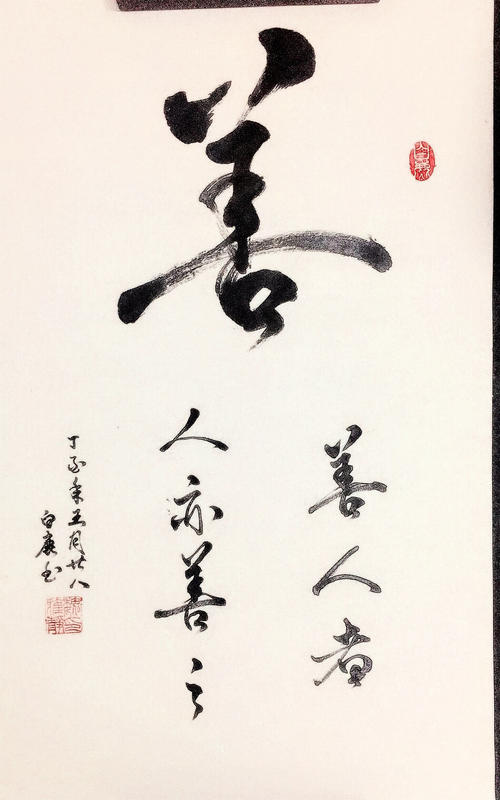 善
善人者
人亦善之
丁酉年五月廿八
白庚书